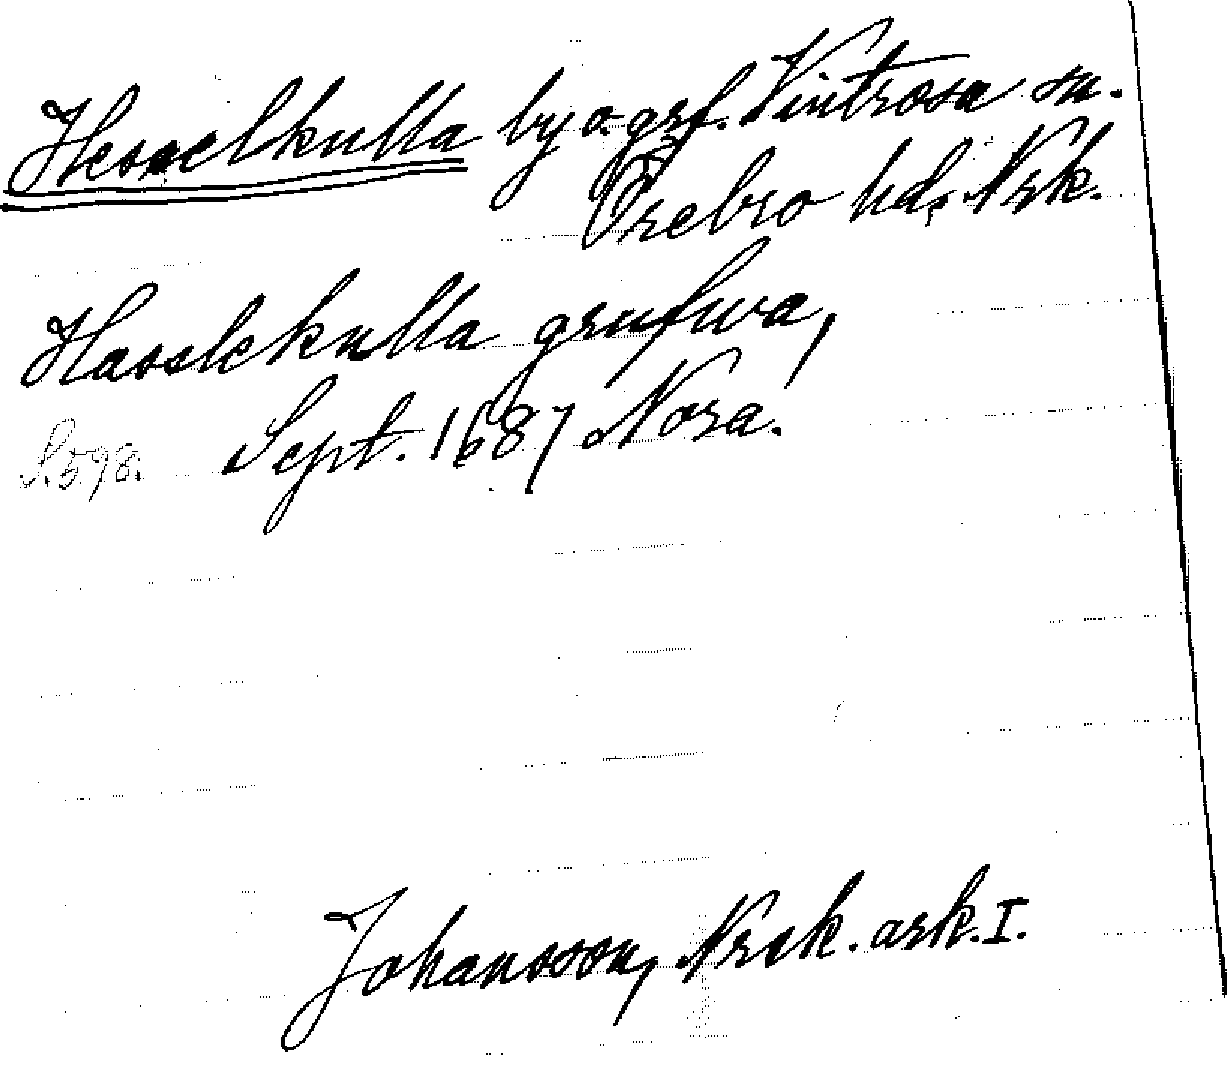 Hesselkulla by o. grf. Vintrosa sn.
Örebro hd, Nrk.
Hasslekulla grufwa,
Sept. 1687 Nora.
S. 598.
Johansson, Nrck. ark. I.